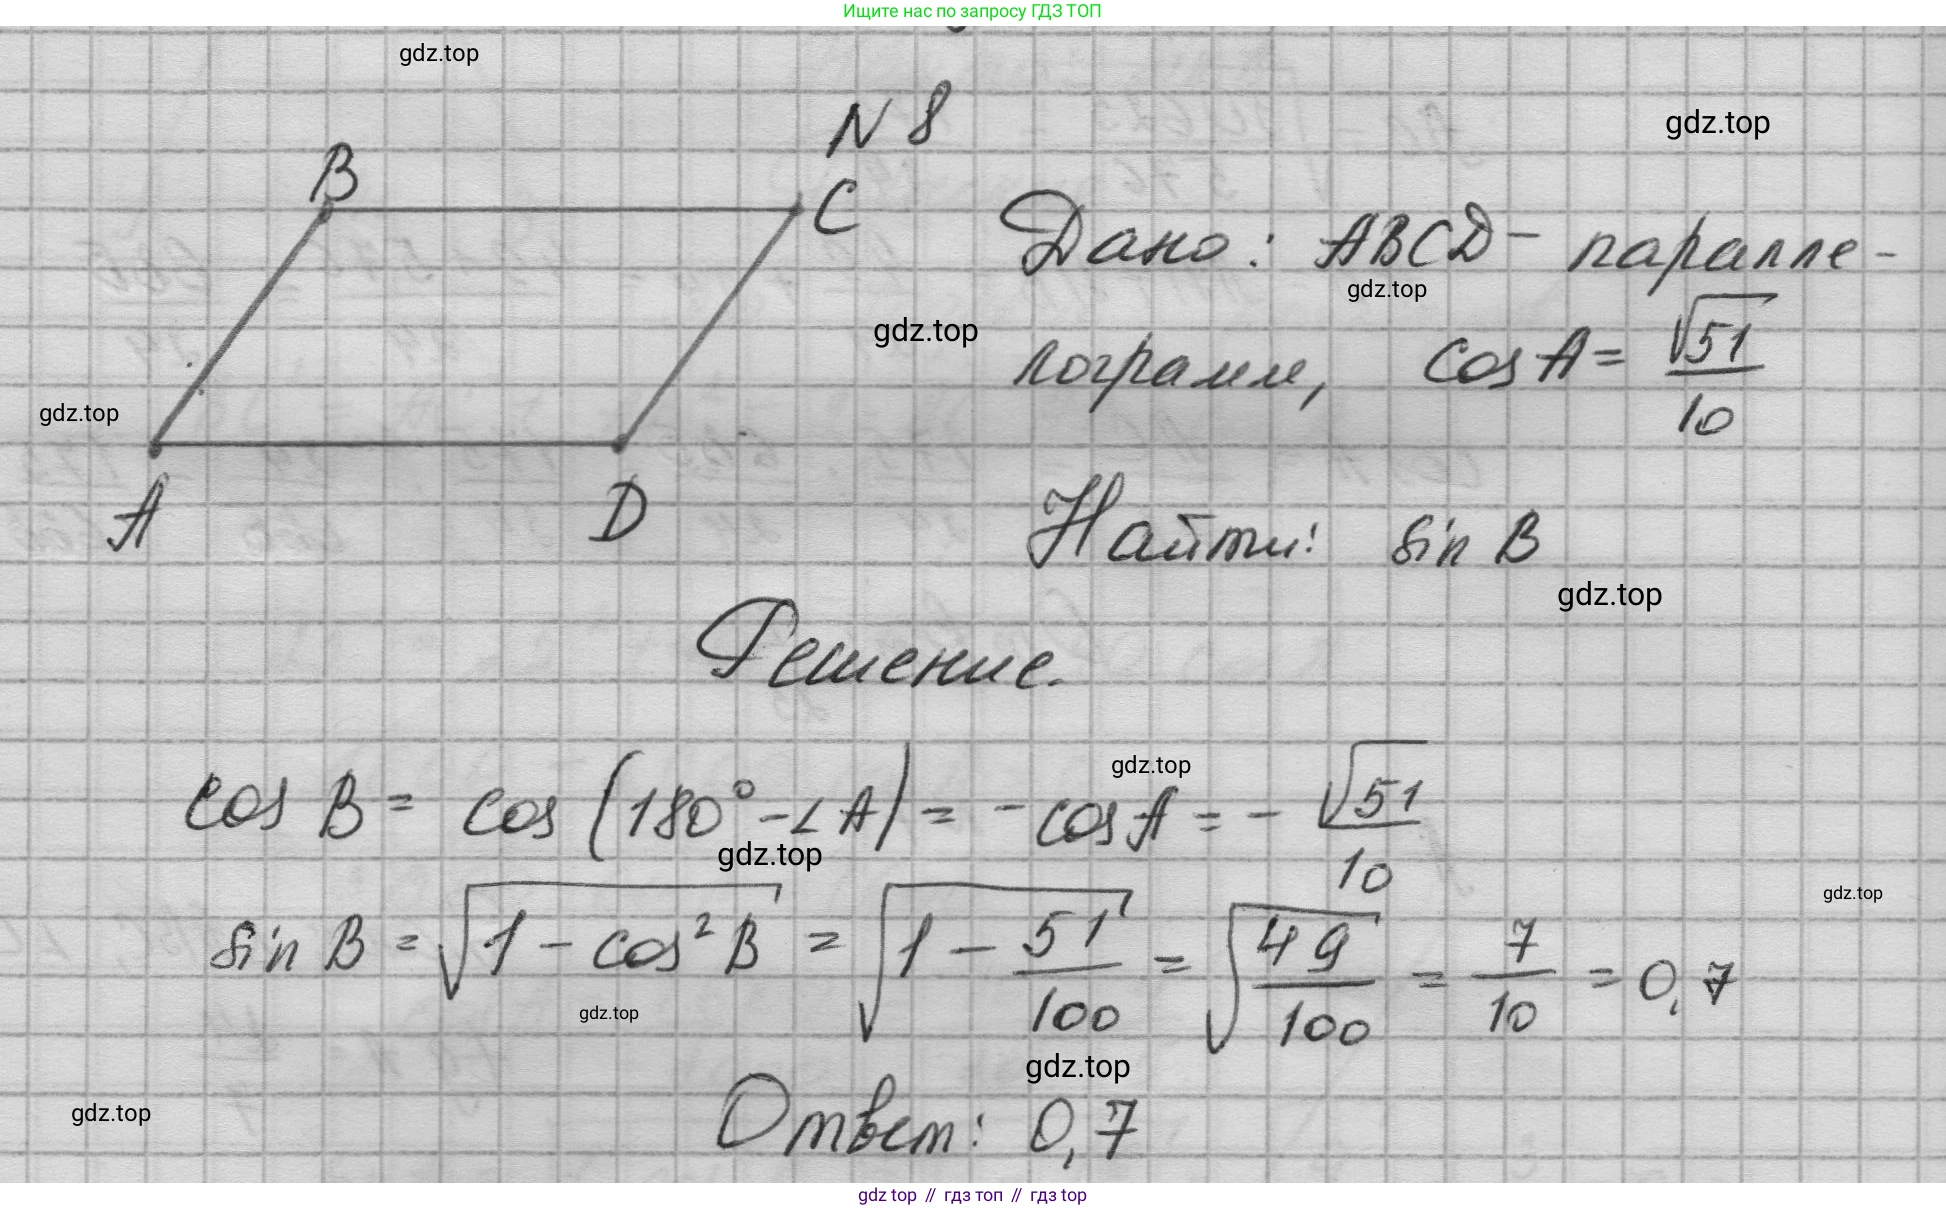 Ищите нас по запросу ГДЗ ТОП
gdz.top
N 8
gdz.top
B
C
Дано: ABCD – паралле-
gdz.top
gdz.top
лограмм, cos A = √51/10
gdz.top
A
D
Найти: sin B
gdz.top
Решение.
gdz.top
cos B = cos (180° - ∠A) = - cos A = - √51/10
gdz.top
gdz.top
sin B = √(1 - cos² B) = √(1 - 51/100) = √(49/100) = 7/10 = 0,7
gdz.top
gdz.top
gdz.top
Ответ: 0,7
gdz top // гдз топ // гдз top